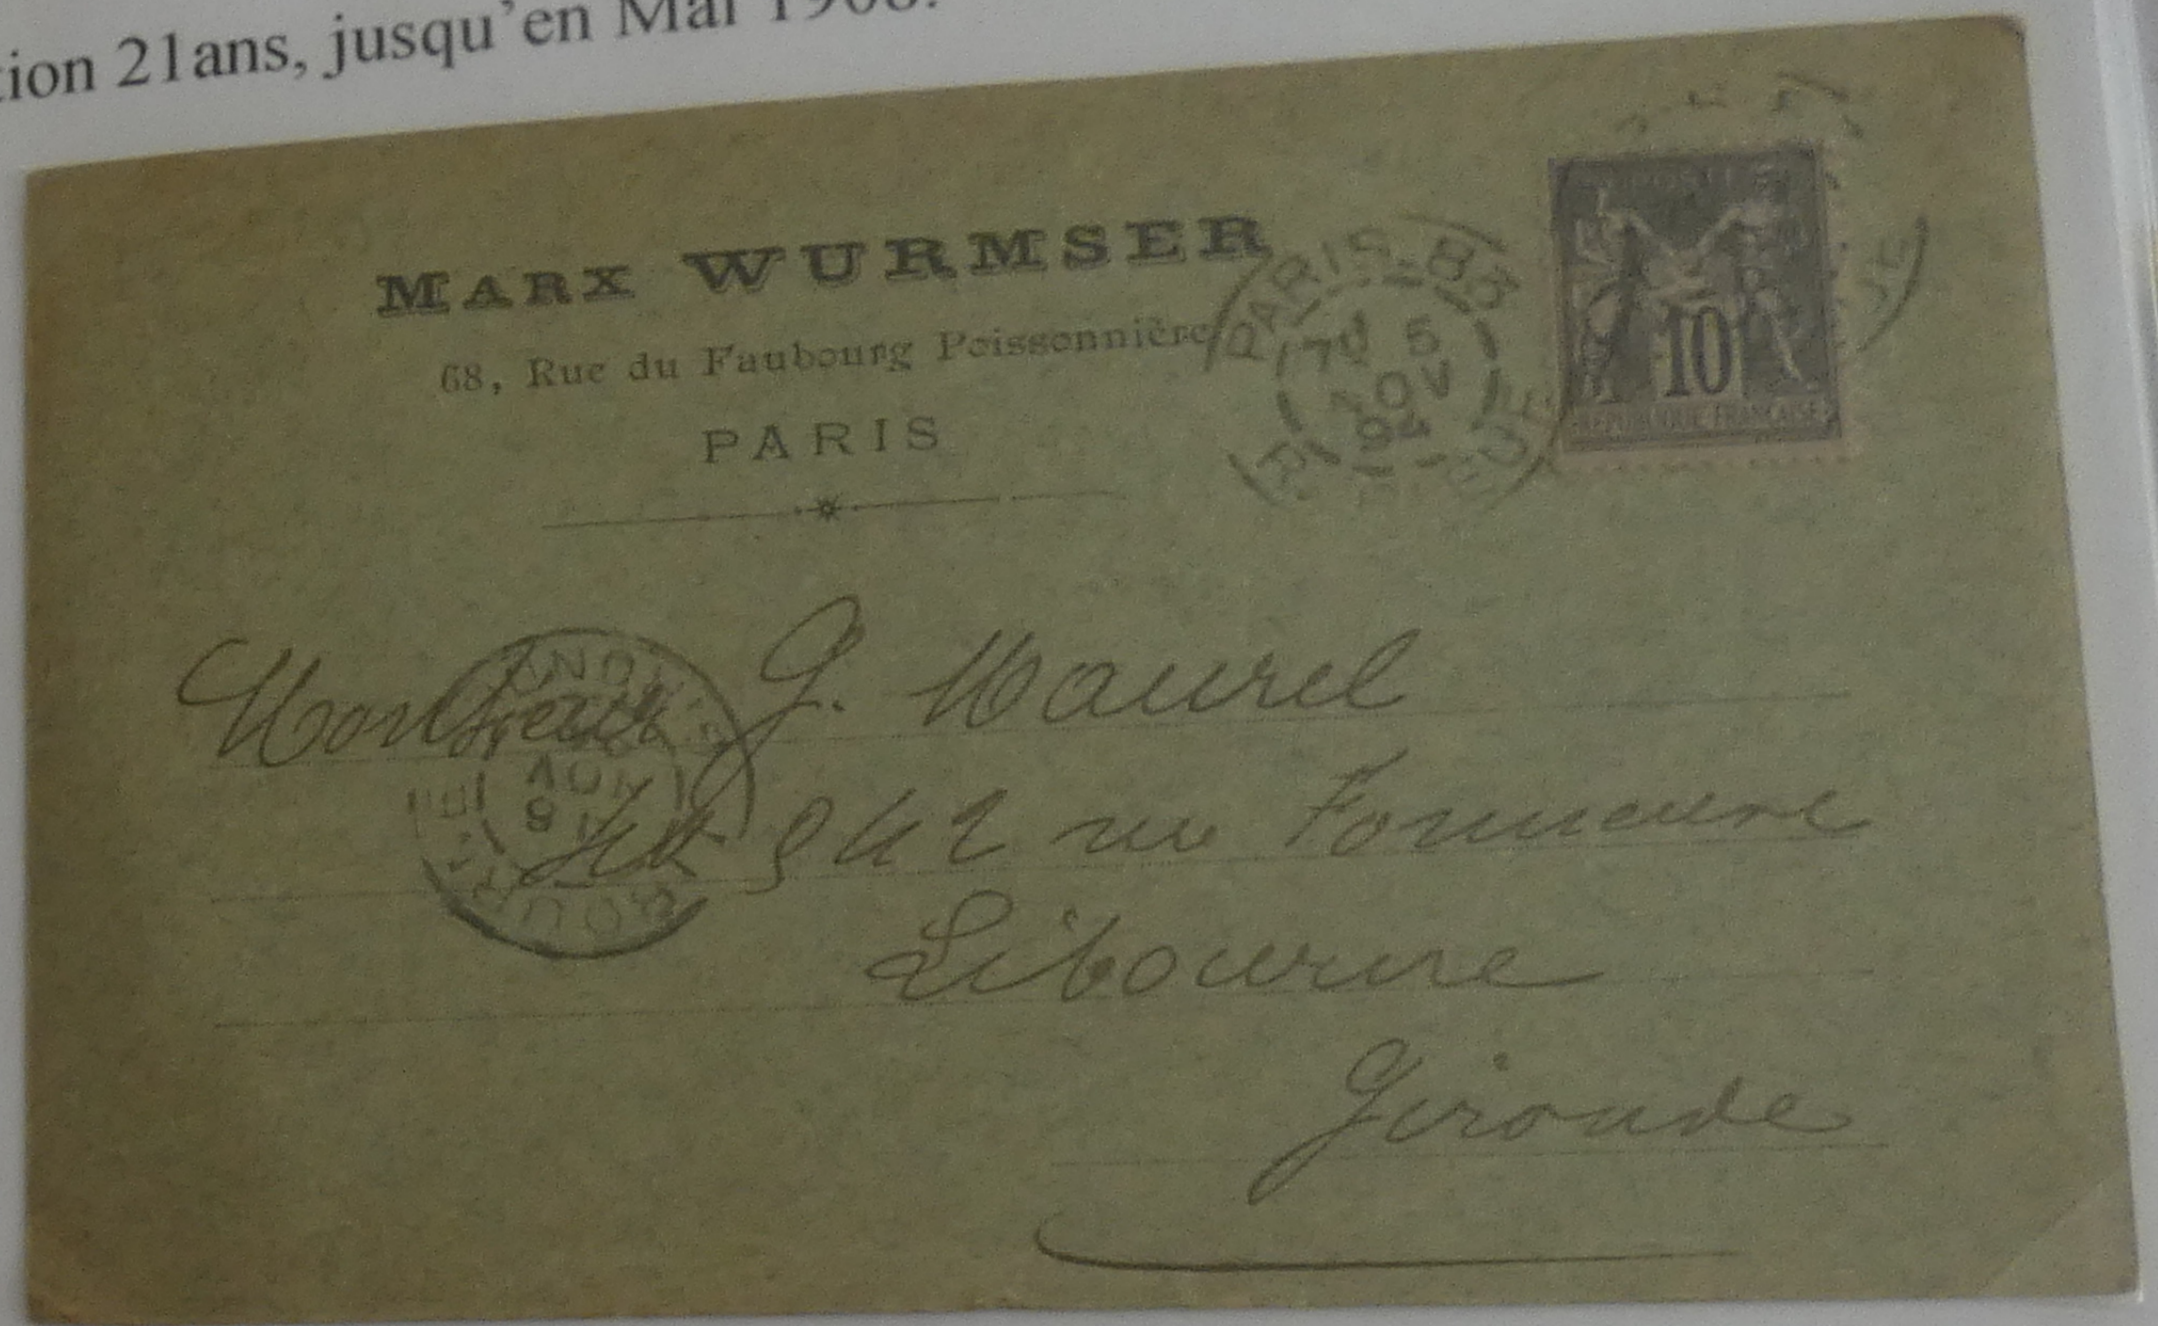 tion 21ans, jusqu'en Mai 1908.
MARX WURMSER
68, Rue du Faubourg Poissonnière
PARIS
PARIS-83
5
NOV
94
10
REPUBLIQUE FRANÇAISE
Monsieur G. Maurel
rue Fonneuve
Libourne
Gironde